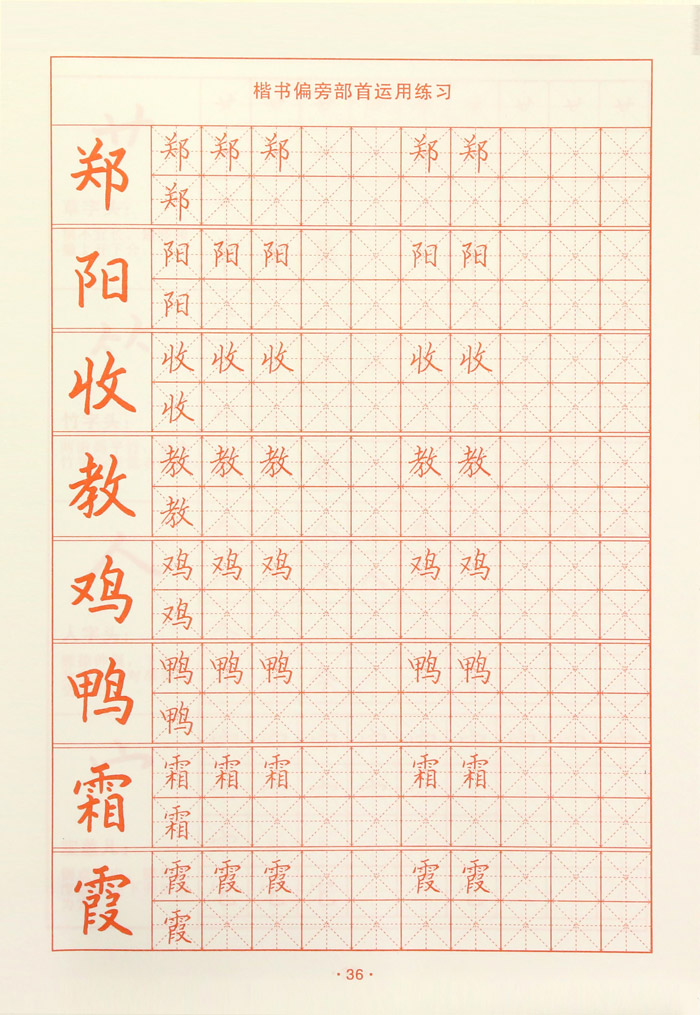 楷书偏旁部首运用练习
郑 郑 郑 郑 郑 郑
郑
阳 阳 阳 阳 阳 阳
阳
收 收 收 收 收 收
收
教 教 教 教 教 教
教
鸡 鸡 鸡 鸡 鸡 鸡
鸡
鸭 鸭 鸭 鸭 鸭 鸭
鸭
霜 霜 霜 霜 霜 霜
霜
霞 霞 霞 霞 霞 霞
霞
·36·